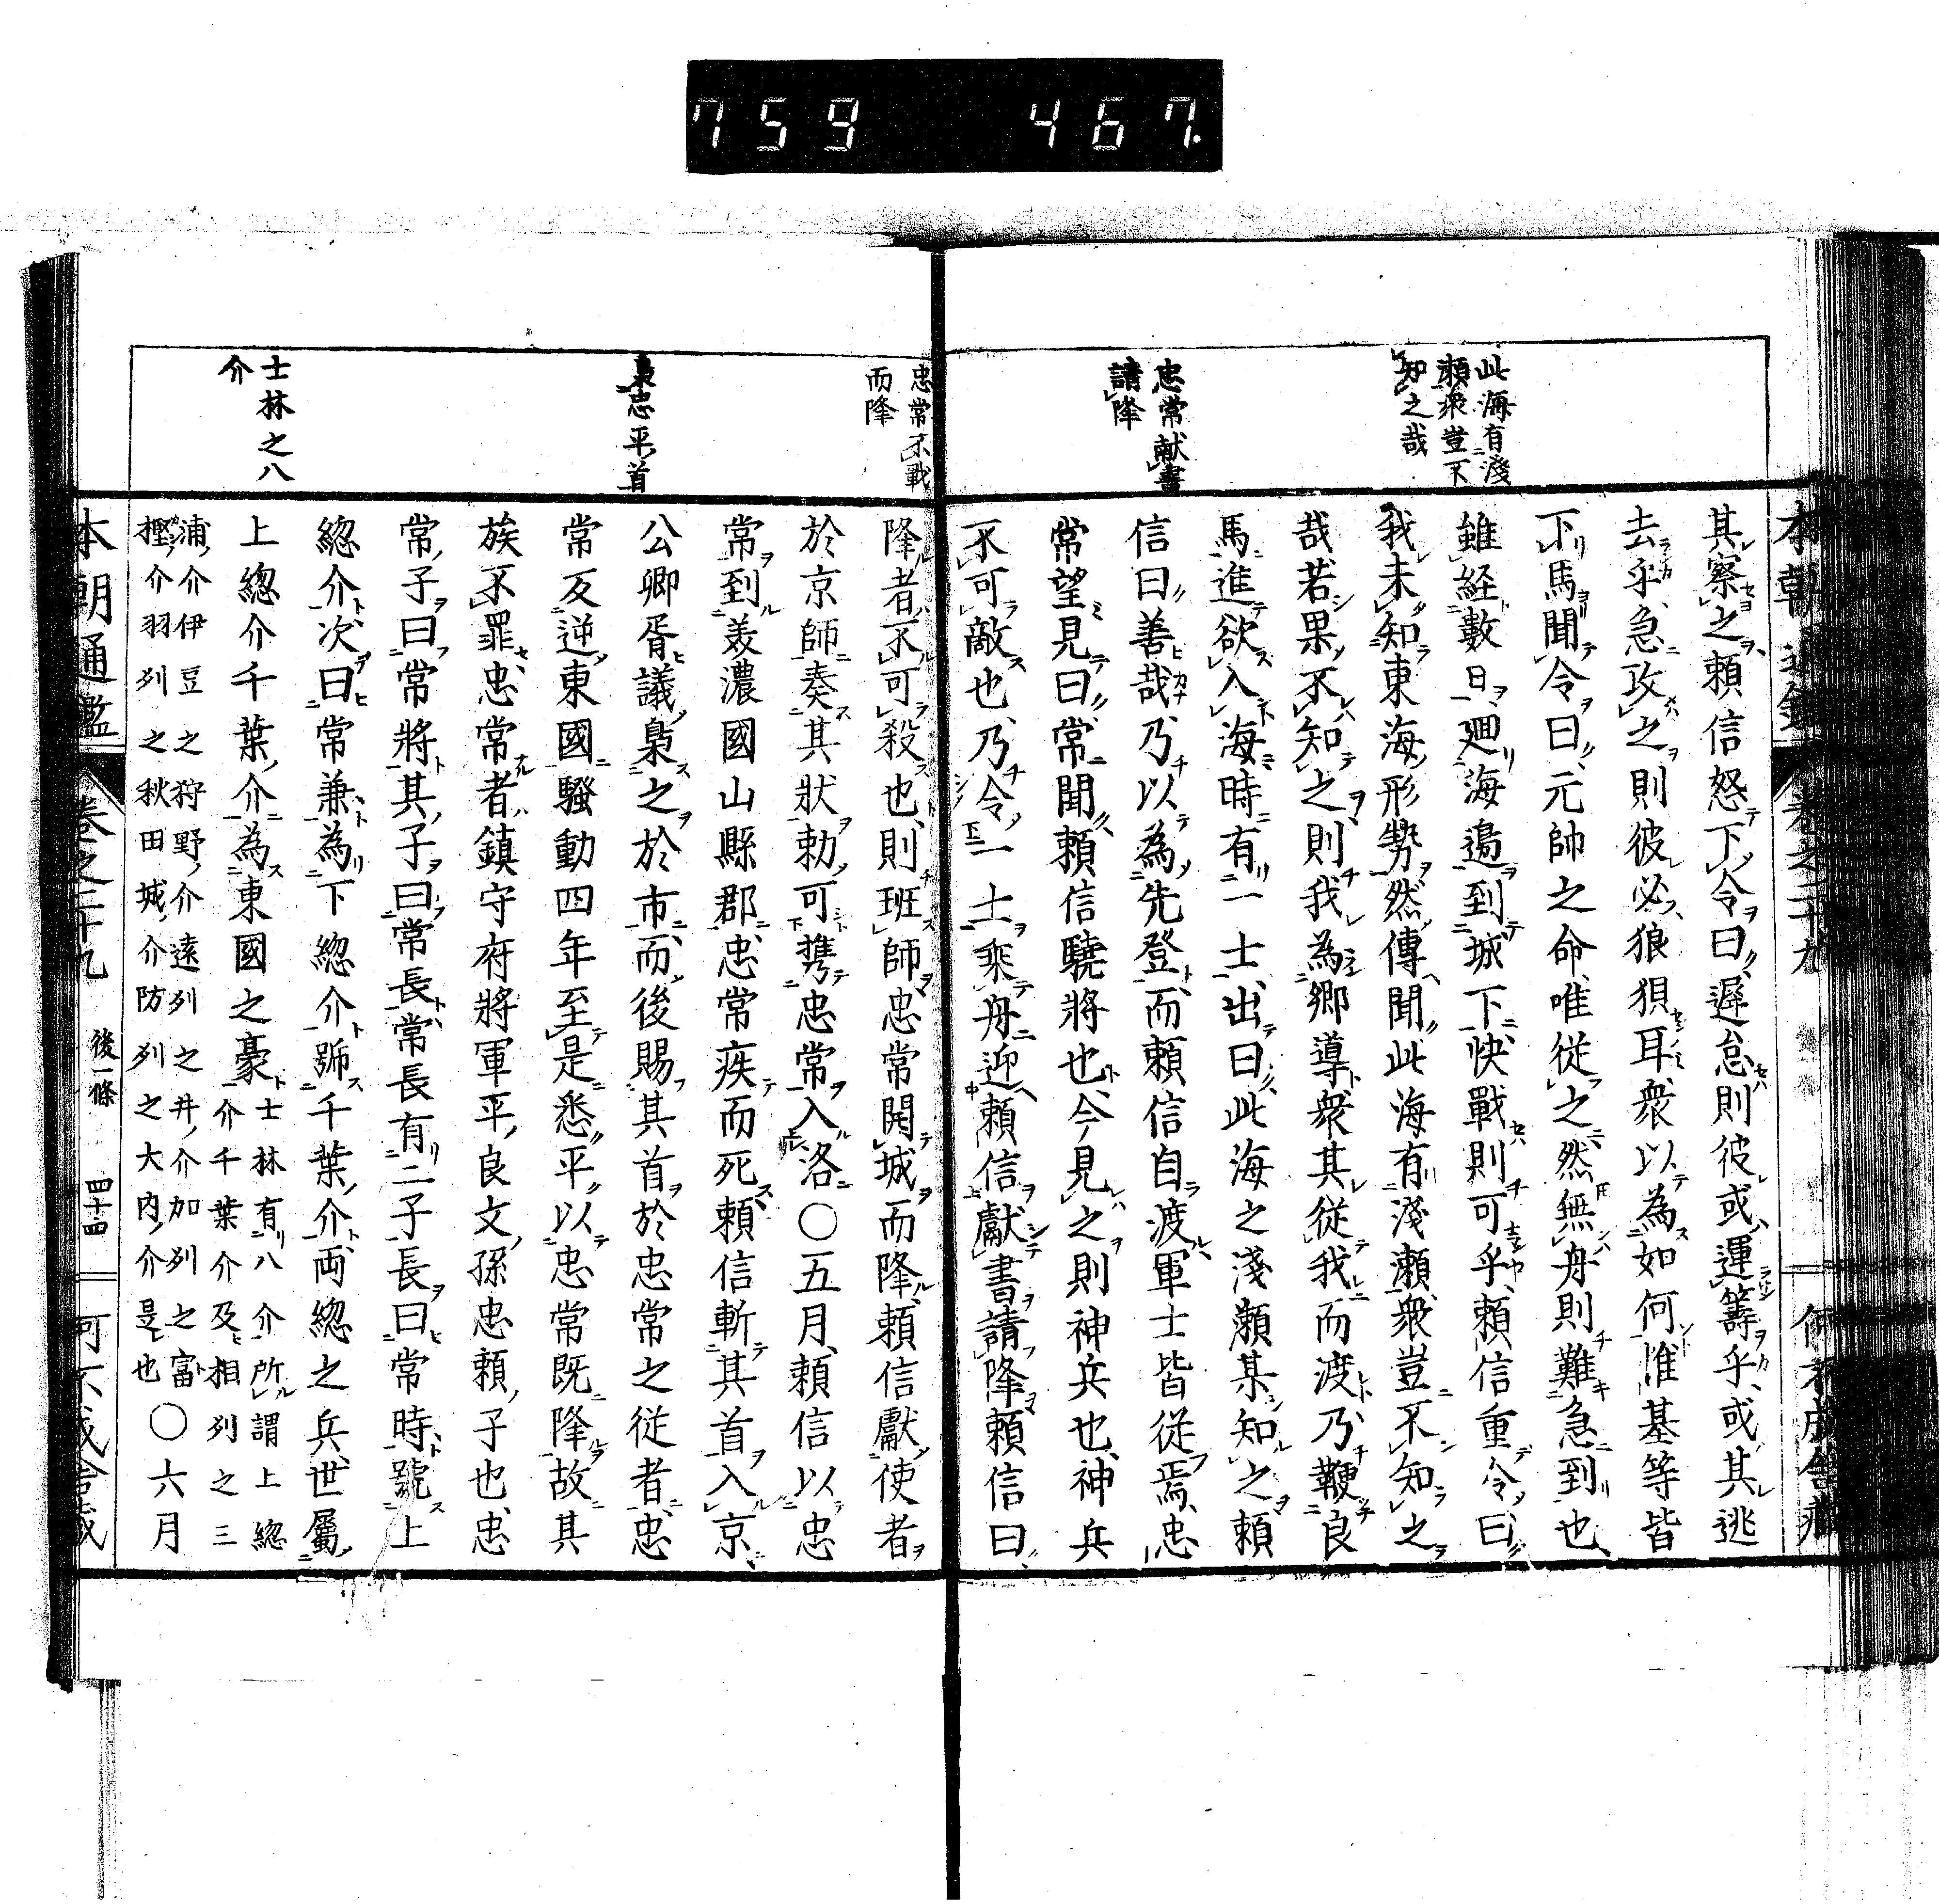 759 467
此海有淺
瀬衆豈不
知之哉
忠常献書
請降
其察之頼信怒下令曰遲怠則彼或運籌乎或其逃
去乎急攻之則彼必狼狽耳衆以為如何惟基等皆
下馬聞令曰元帥之命唯從之然無舟則難急到也
雖経數日廻海邉到城下快戰則可乎頼信重令曰
我未知東海形勢然傳聞此海有淺瀬衆豈不知之
哉若果不知之則我為郷導衆其従我而渡乃鞭良
馬進欲入海時有一士出曰此海之淺瀬某知之頼
信曰善哉乃以為先登而頼信自渡軍士皆従焉忠
常望見曰常聞頼信驍將也今見之則神兵也神兵
不可敵也乃令一士乘舟迎頼信獻書請降頼信曰
忠常不戰
而降
梟忠平首
士林之八
介
降者不可殺也則班師忠常開城而降頼信獻使者
於京師奏其狀勅可携忠常入洛〇五月頼信以忠
常到美濃國山縣郡忠常疾而死頼信斬其首入京
公卿胥議梟之於市而後賜其首於忠常之従者忠
常反逆東國騷動四年至是悉平以忠常既降故其
族不罪忠常者鎮守府將軍平良文孫忠頼子也忠
常子曰常將其子曰常長常長有二子長曰常時號上
總介次曰常兼為下總介號千葉介両總之兵世屬
上總介千葉介為東國之豪士林有八介所謂上總
介千葉介及相列之三
浦介伊豆之狩野介遠列之井介加列之富
樫介羽列之秋田城介防列之大内介是也〇六月
本朝通鑑 卷之二十九 後一條 四十四